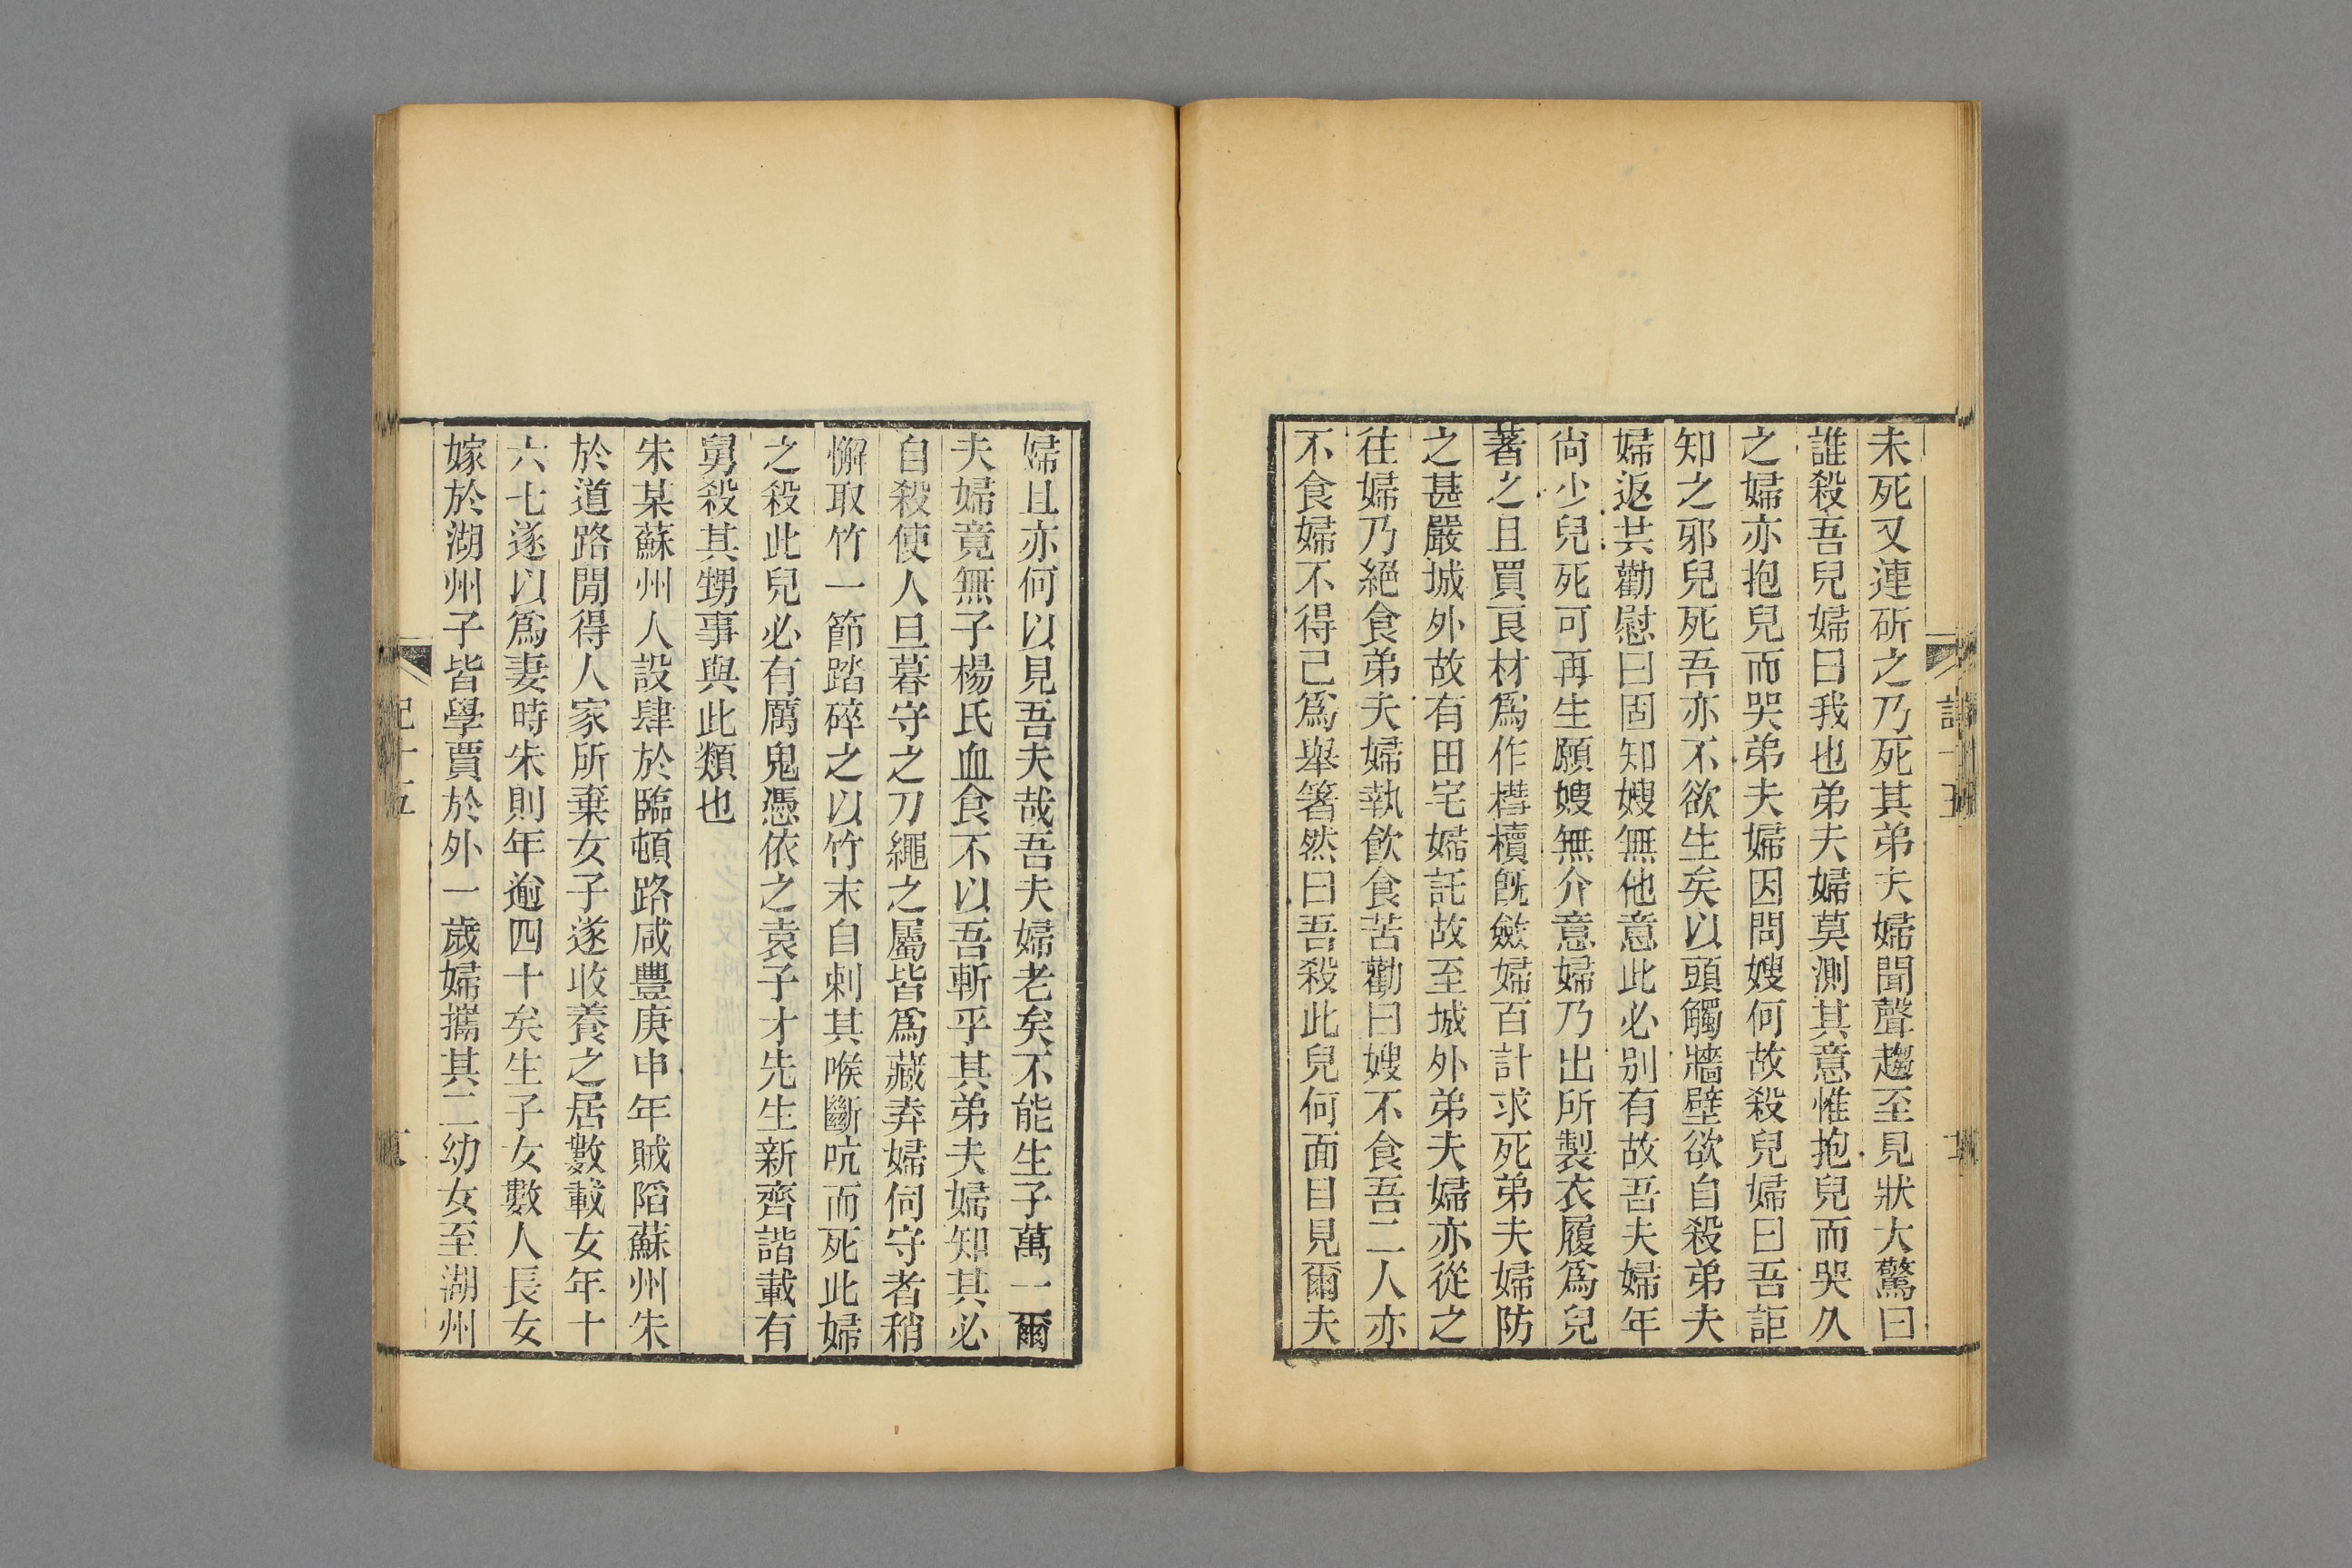 未死又連斫之乃死其弟夫婦聞聲趨至見狀大驚曰
誰殺吾兒婦曰我也弟夫婦莫測其意惟抱兒而哭久
之婦亦抱兒而哭弟夫婦因問嫂何故殺兒婦曰吾詎
知之邪兒死吾亦不欲生矣以頭觸牆壁欲自殺弟夫
婦返共勸慰曰固知嫂無他意此必別有故吾夫婦年
尙少兒死可再生願嫂無介意婦乃出所製衣履爲兒
著之且買良材爲作槥櫝旣斂婦百計求死弟夫婦防
之甚嚴城外故有田宅婦託故至城外弟夫婦亦從之
往婦乃絕食弟夫婦執飲食苦勸曰嫂不食吾二人亦
不食婦不得已爲舉箸然曰吾殺此兒何面目見爾夫
婦且亦何以見吾夫哉吾夫婦老矣不能生子萬一爾
夫婦竟無子楊氏血食不以吾斬乎其弟夫婦知其必
自殺使人旦暮守之刀繩之屬皆爲藏弆婦伺守者稍
懈取竹一節踏碎之以竹末自刺其喉斷吭而死此婦
之殺此兒必有厲鬼憑依之袁子才先生新齊諧載有
舅殺其甥事與此類也
朱某蘇州人設肆於臨頓路咸豐庚申年賊陷蘇州朱
於道路閒得人家所棄女子遂收養之居數載女年十
六七遂以爲妻時朱則年逾四十矣生子女數人長女
嫁於湖州子皆學賈於外一歲婦攜其二幼女至湖州
記十五